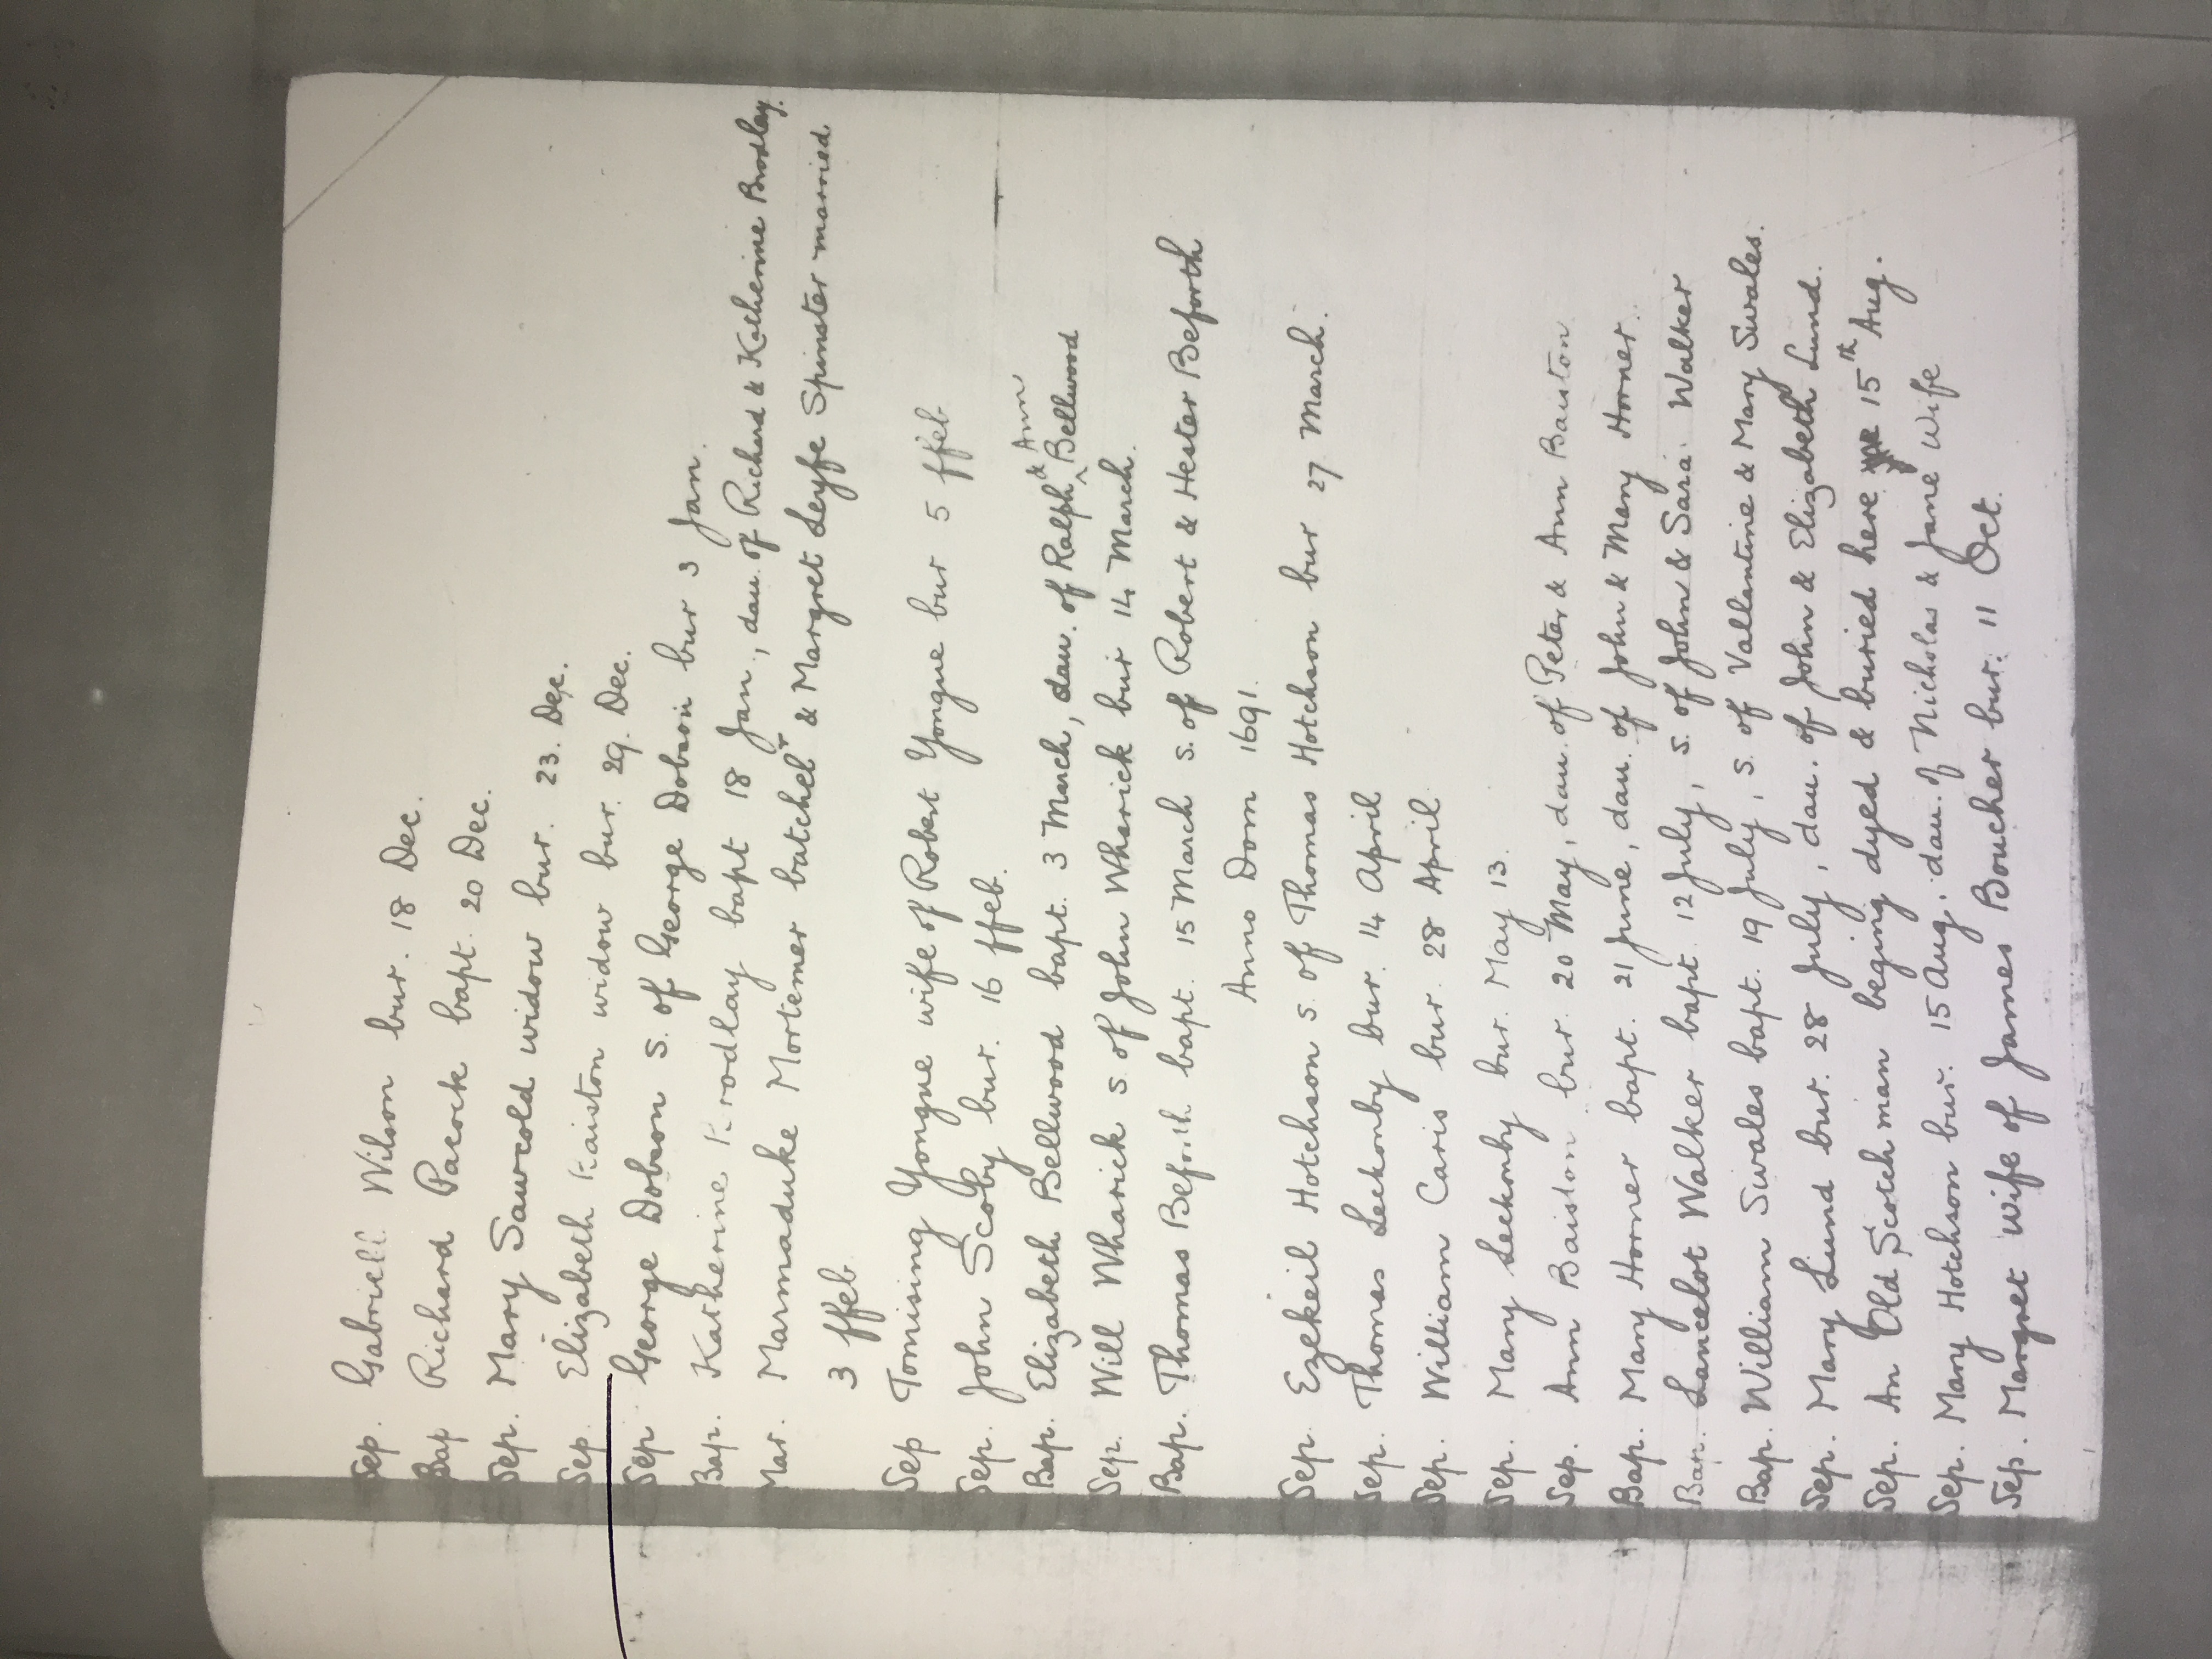 Sep. Gabriell Wilson bur. 18 Dec.
Bap Richard Pacock bapt. 20 Dec.
Sep. Mary Sawcold widow bur. 23. Dec.
Sep. Elizabeth Raiston widow bur. 29. Dec.
Sep George Dobson s. of George Dobson bur 3 Jan.
Bap. Katherine Brodlay bapt 18 Jan., dau. of Richard & Katherine Brodlay.
Mar. Marmaduke Mortemer batchelr & Margret Leyfe Spinster married
3 ffeb.
Sep Tomising Yongue wife of Robert Yongue bur 5 ffeb
Sep. John Scoby bur. 16 ffeb.
Bap. Elizabeth Bellwood bapt. 3 March, dau. of Ralph & Ann Bellwood
Sep. Will Wharick s. of John Wharick bur 14 March.
Bap. Thomas Beforth bapt. 15 March s. of Robert & Hester Beforth
Anno Dom 1691.
Sep. Ezekeil Hotchson s. of Thomas Hotchson bur 27 March.
Sep. Thomas Leckonby bur. 14 April
Sep. William Caris bur. 28 April.
Sep. Mary Leckonby bur. May 13.
Sep. Ann Baiston bur. 20 May, dau. of Peter & Ann Baiston
Bap. Mary Horner bapt. 21 June, dau. of John & Mary Horner.
Bap. Lancelot Walker bapt. 12 July, s. of John & Sara Walker
Bap. William Swales bapt. 19 July, s. of Vallantine & Mary Swales.
Sep. Mary Lund bur. 28 July, dau. of John & Elizabeth Lund.
Sep. An Old Scotch man beging dyed & buried here 15th Aug.
Sep. Mary Hotchson bur. 15 Aug. dau. of Nicholas & Jane Wife
Sep. Margret Wife of James Boucher bur. 11 Oct.